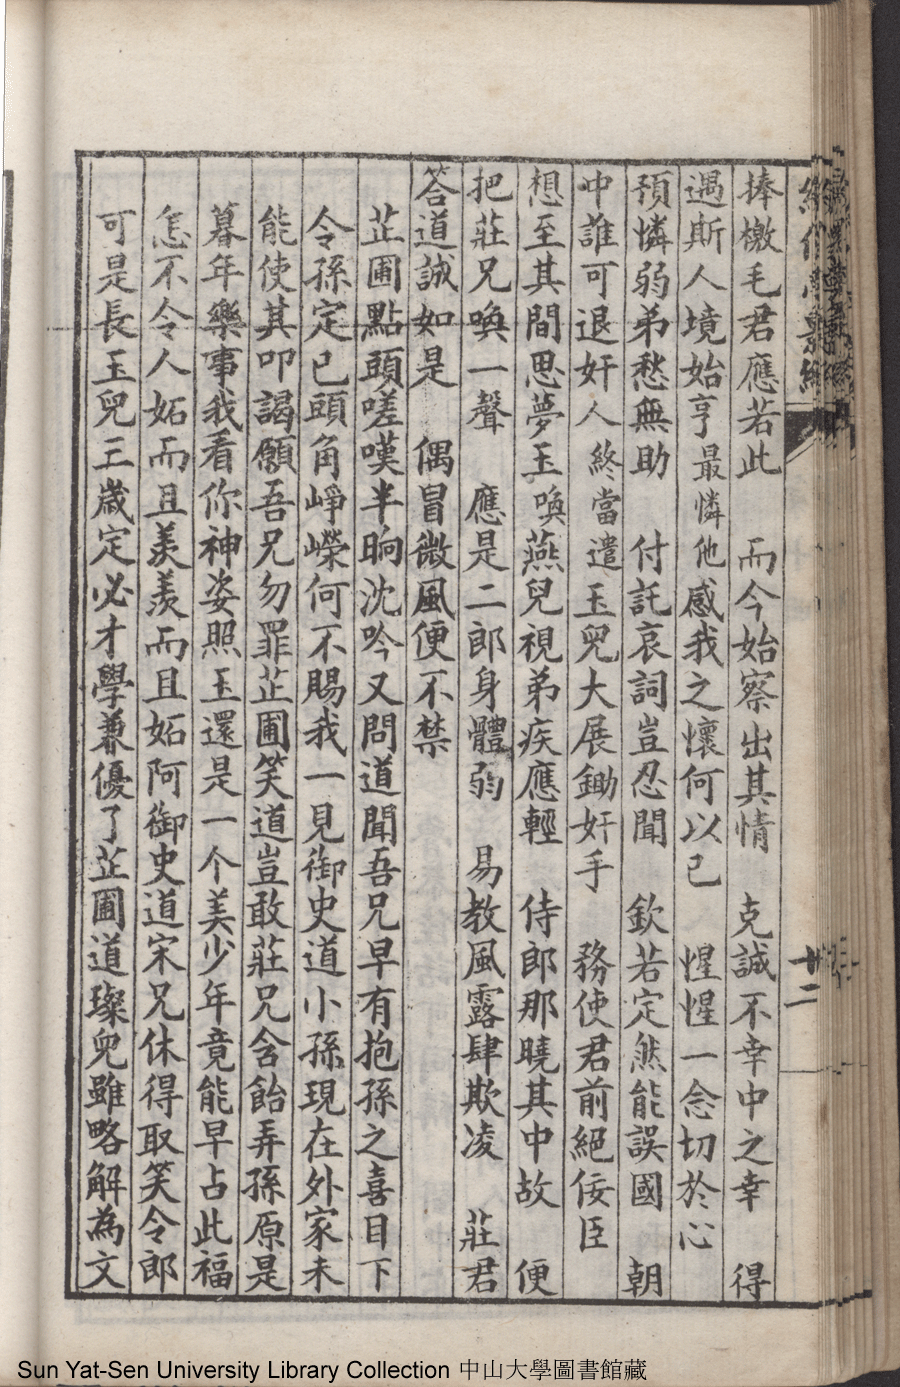 捧檄毛君應若此　而今始察出其情　克誠不幸中之幸　得
遇斯人境始亨　最憐他感我之懷何以已　惺惺一念切於心
預憐弱弟愁無助　付託哀詞豈忍聞　欽若定然能誤國　朝
中誰可退奸人　終當遣玉兒大展鋤奸手　務使君前絕佞臣
想至其間思夢玉　喚燕兒視弟疾應輕　侍郎那曉其中故　便
把莊兄喚一聲　應是二郎身體弱　易教風露肆欺凌　莊君
答道誠如是　偶冒微風便不禁
芷圃點頭嗟嘆半晌沈吟又問道聞吾兄早有抱孫之喜目下
令孫定已頭角崢嶸何不賜我一見御史道小孫現在外家未
能使其叩謁願吾兄勿罪芷圃笑道豈敢莊兄含飴弄孫原是
暮年樂事我看你神姿照玉還是一个美少年竟能早占此福
怎不令人妬而且羨羨而且妬阿御史道宋兄休得取笑令郎
可是長玉兒三歲定必才學兼優了芷圃道璨兒雖略解為文
廿二
Sun Yat-Sen University Library Collection 中山大學圖書館藏